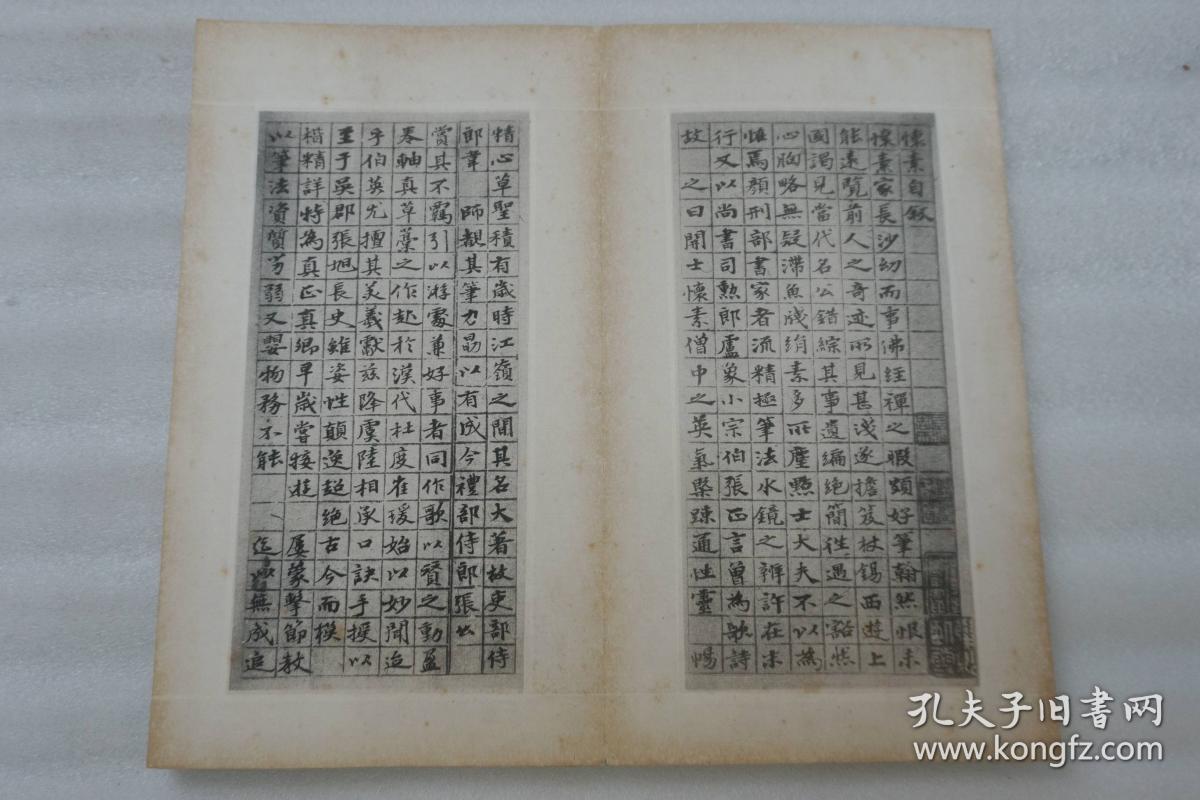 懷素自敘
懷素家長沙幼而事佛經禪之暇頗好筆翰然恨未
能遠覽前人之奇迹所見甚淺遂擔笈杖錫西遊上
國謁見當代名公錯綜其事遺編絕簡往遇之豁然
心胸略無疑滯魚牋絹素多所塵點士大夫不以為
恠焉顏刑部書家者流精極筆法水鏡之辨許在末
行又以尚書司勳郎盧象小宗伯張正言曾為歌詩
故 之曰開士懷素僧中之英氣槩踈通性靈 暢
精心草聖積有歲時江嶺之間其名大著故吏部侍
郎韋 師覩其筆力勗以有成今禮部侍郎張公
賞其不羈引以遊處兼好事者同作歌以贊之動盈
卷軸真草藁之作起於漢代杜度崔瑗始以妙聞迨
乎伯英尤擅其美羲獻茲降虞陸相承口訣手授以
至于吳郡張旭長史雖姿性顛逸超絕古今而模
楷精詳特為真正真卿早歲嘗接遊 屢蒙擊節教
以筆法資質劣弱又嬰物務不能 迄以無成追
孔夫子旧書网
www.kongfz.com